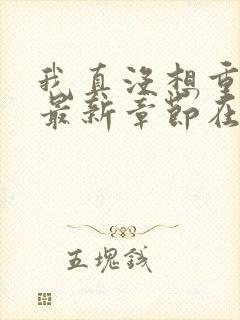 我真没想重
最新章节在
五块钱